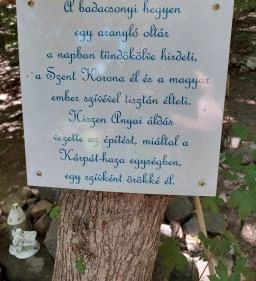 A badacsonyi hegyen
egy aranyló oltár
a napban tündökölve hirdeti,
a Szent Korona él és a magyar
ember szívével tisztán élteti.
Hiszen Anyai áldás
vezette az építést, miáltal a
Kárpát-haza egységben,
egy szívként örökké él.